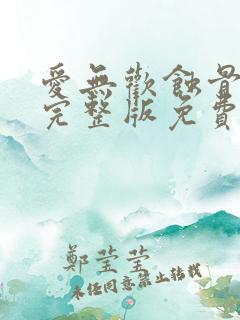 愛無歡蝕骨
完整版免費
鄭瑩瑩
未經同意禁止轉載